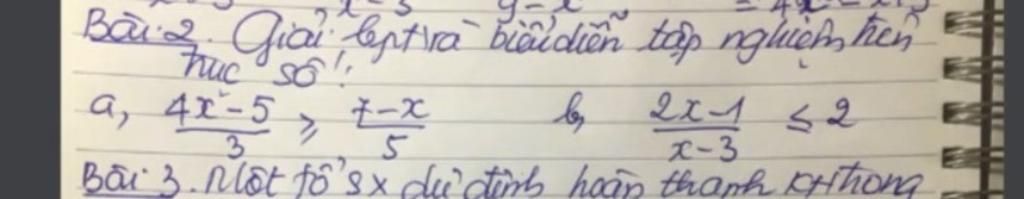 Bài 2. Giải bpt và biểu diễn tập nghiệm trên
trục số:
a, (4x-5)/3 ≥ (7-x)/5   b, (2x-1)/(x-3) ≤ 2
Bài 3. Một tổ sx dự định hoàn thành KH trong